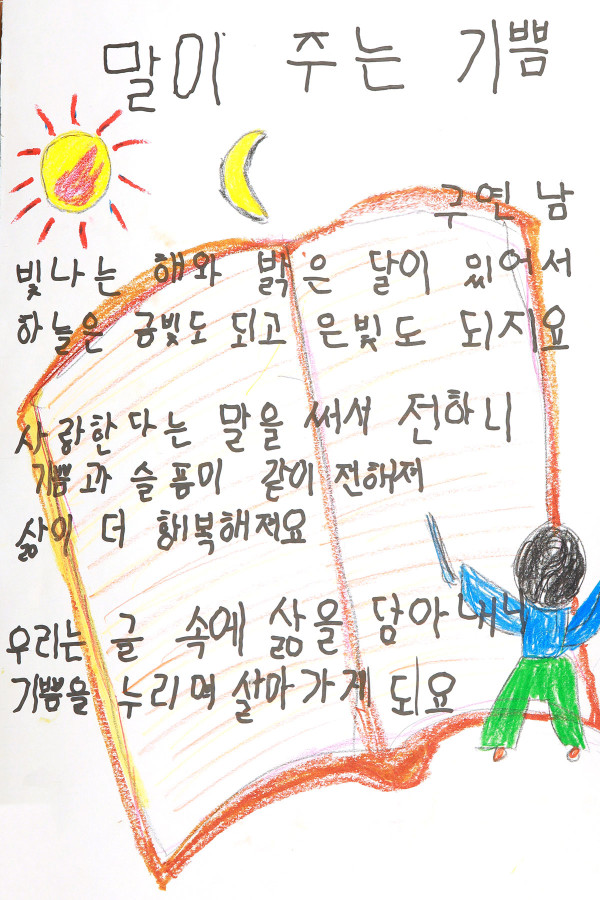 말이 주는 기쁨
구연남
빛나는 해와 밝은 달이 있어서
하늘은 금빛도 되고 은빛도 되지요
사랑한다는 말을 써서 전하니
기쁨과 슬픔미 같이 전해저
삶이 더 행복해저요
우리는 글 속에 삶을 담아내니
기쁨을 누리며 살아가게 되요